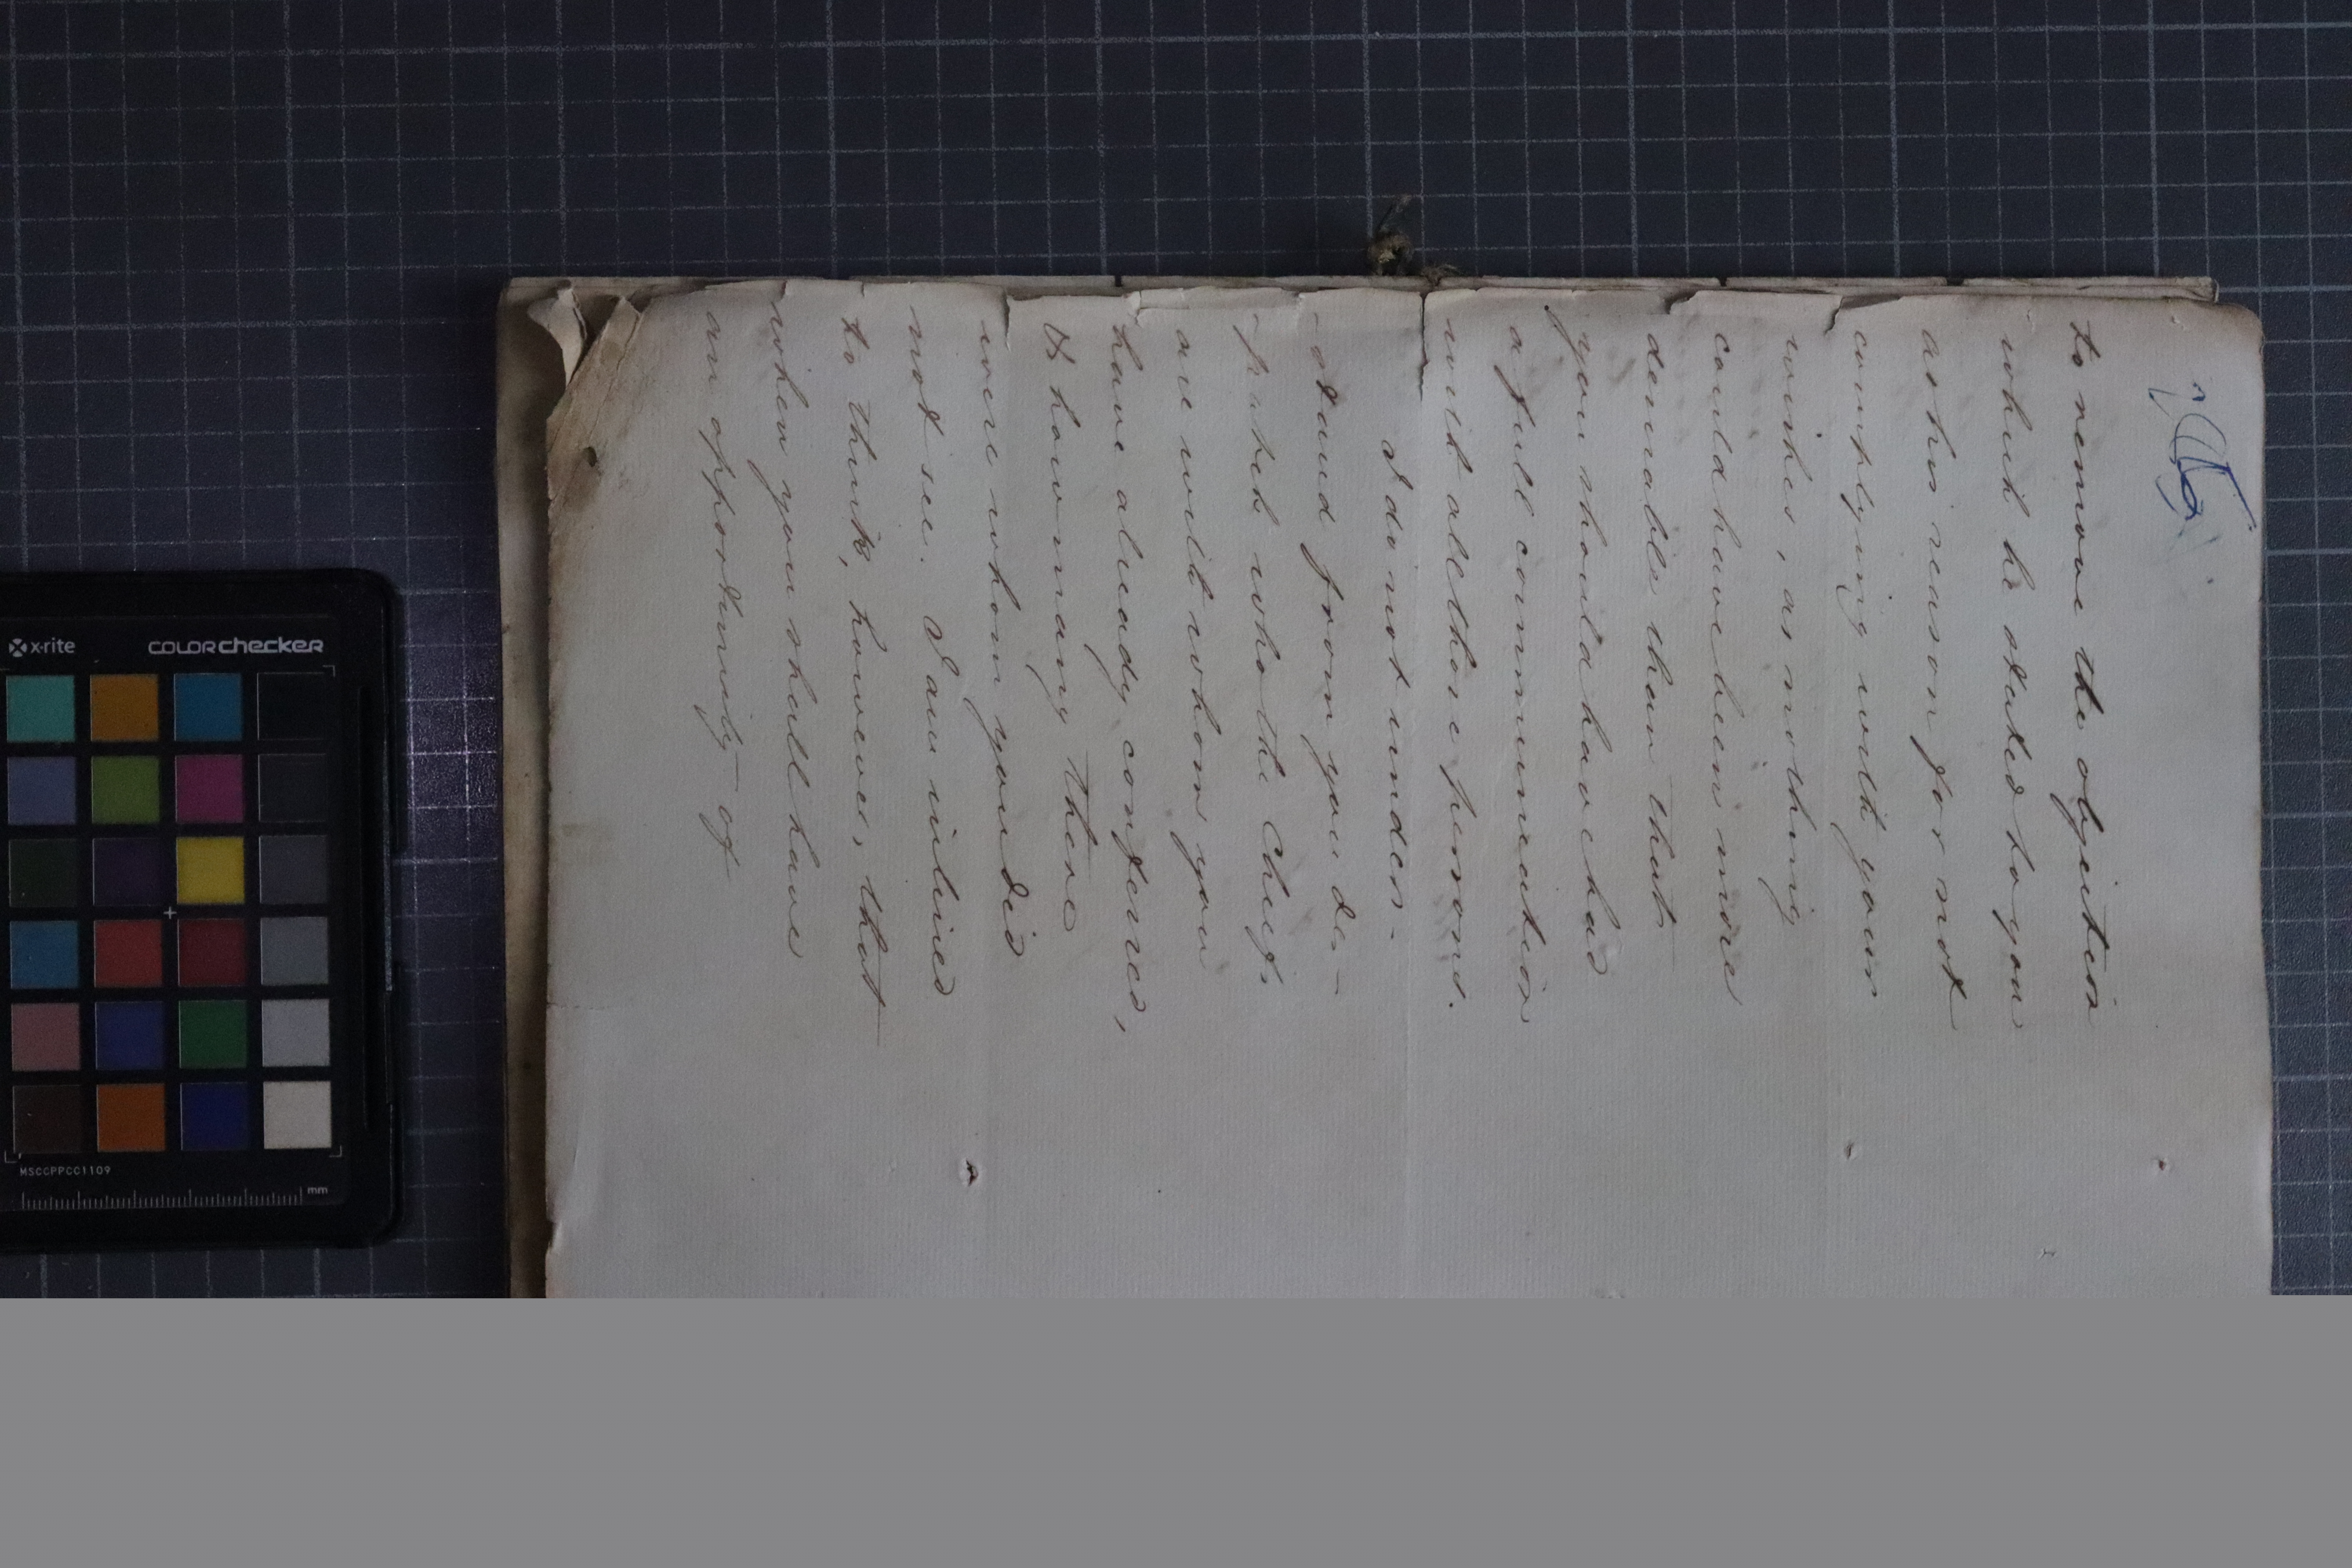 to remove the objection
which he stated to you
as his reason for not
complying with your
wishes, as nothing
could have been more
desirable than that
you should have had
a full communication
with all those persons.
I do not under-
stand from you de-
spatch who the Chiefs
are with whom you
have already conferred,
& how many there
were whom you did
not see. I am inclined
to think, however, that
when you shall have
an opportunity of
x-rite
colorchecker
MSCCPPCC1109
mm